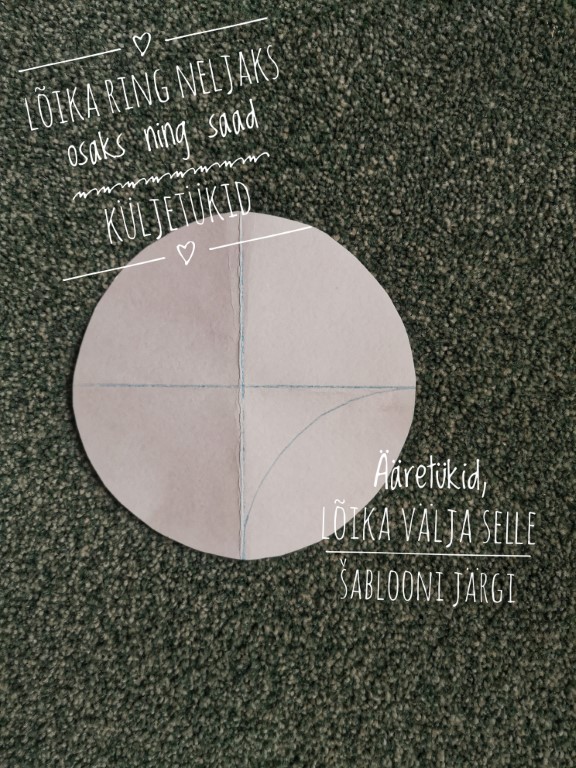 LÕIKA RING NELJAKS
osaks ning saad
KÜLJETÜKID
Ääretükid,
LÕIKA VÄLJA SELLE
ŠABLOONI JÄRGI